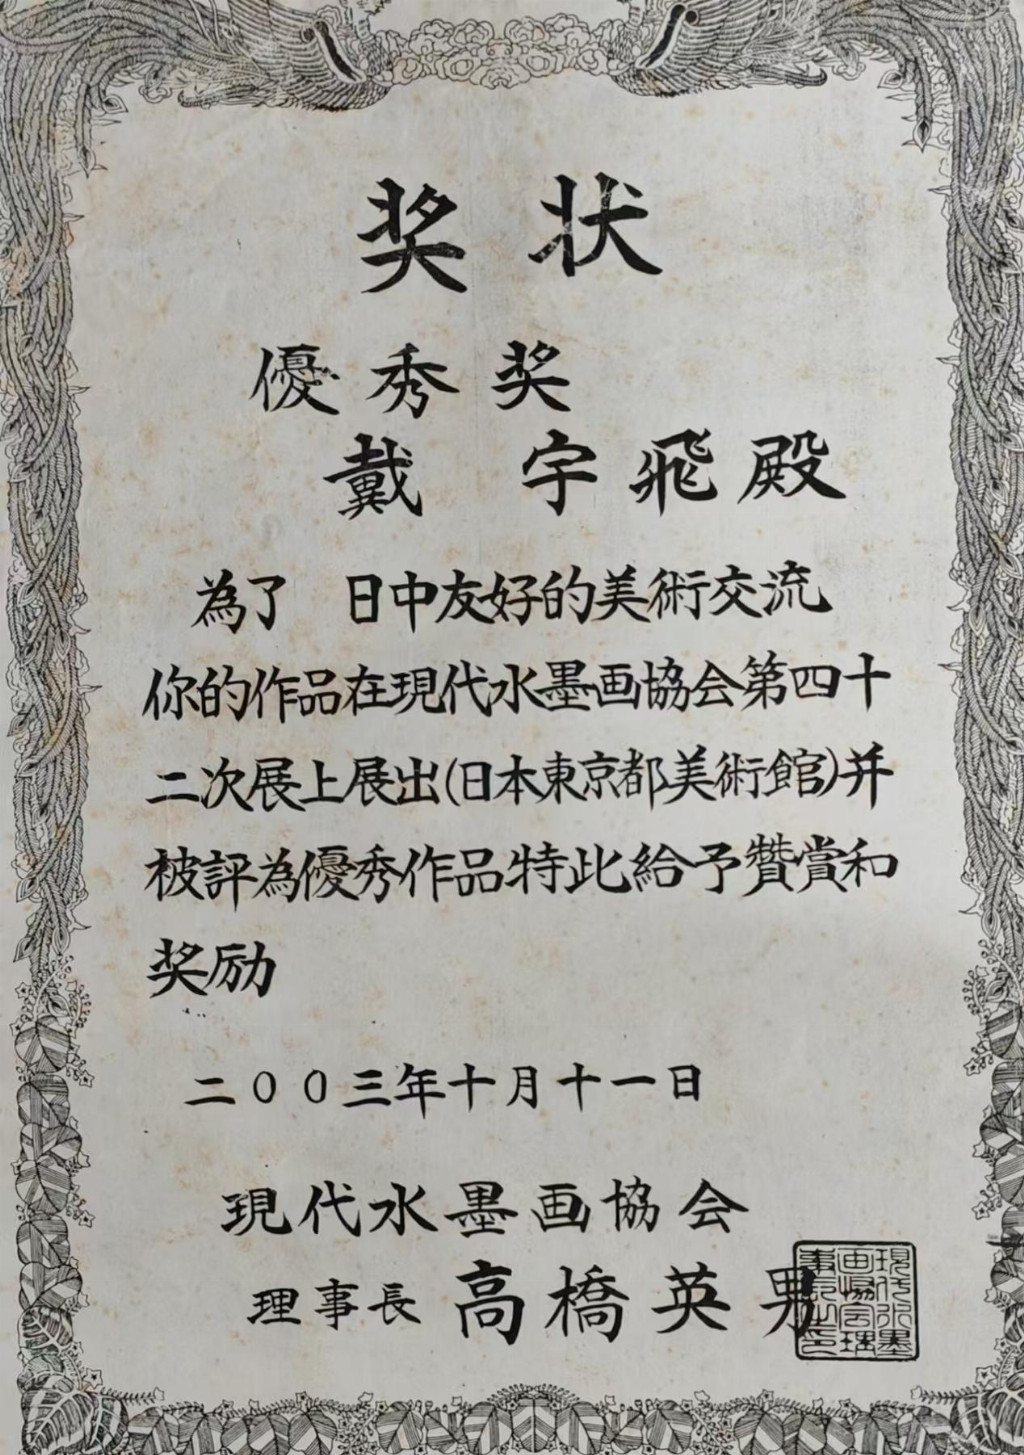 奖状
優秀奖
戴 宇飛殿
為了 日中友好的美術交流
你的作品在現代水墨画協会第四十
二次展上展出(日本東京都美術館)并
被評為優秀作品特此給予贊賞和
奖励
二00三年十月十一日
現代水墨画協会
理事長 高橋英男
現代水墨
画協会理
事長之印